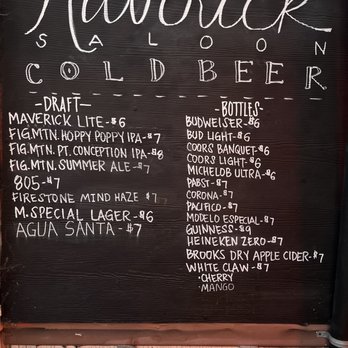 Maverick
SALOON
COLD BEER
-DRAFT-
MAVERICK LITE-$6
FIG.MTN. HOPPY POPPY IPA-$7
FIG.MTN. PT. CONCEPTION IPA-$8
FIG.MTN. SUMMER ALE-$7
805-$7
FIRESTONE MIND HAZE $7
M.SPECIAL LAGER-$6
AGUA SANTA-$7
-BOTTLES-
BUDWEISER-$6
BUD LIGHT-$6
COORS BANQUET-$6
COORS LIGHT-$6
MICHELOB ULTRA-$6
PABST-$7
CORONA-$7
PACIFICO-$7
MODELO ESPECIAL-$7
GUINNESS-$9
HEINEKEN ZERO-$7
BROOKS DRY APPLE CIDER-$7
WHITE CLAW-$7
•CHERRY
•MANGO